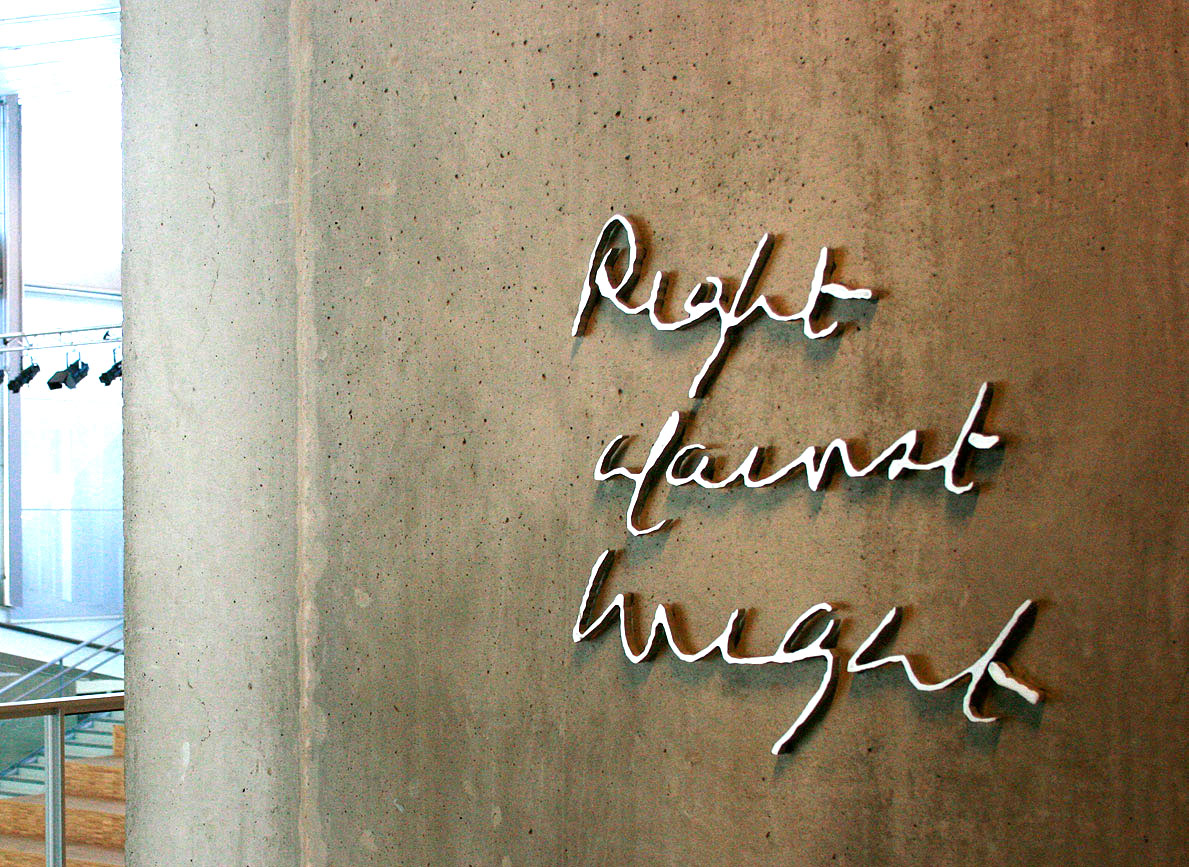 Right
against
might